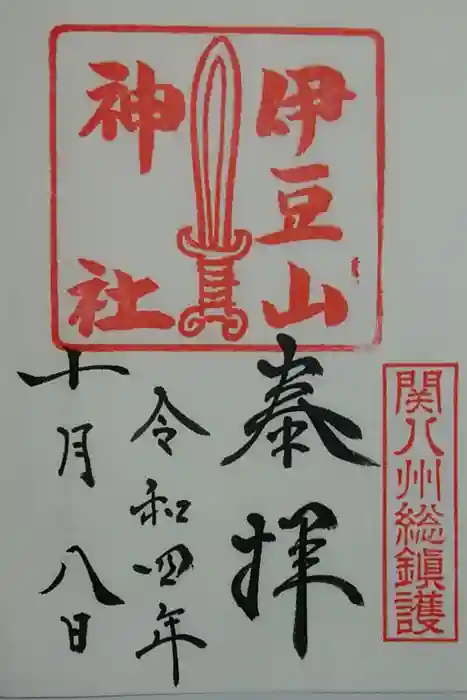 関八州総鎮護
伊豆山
神社
奉拝
令和四年
十月八日